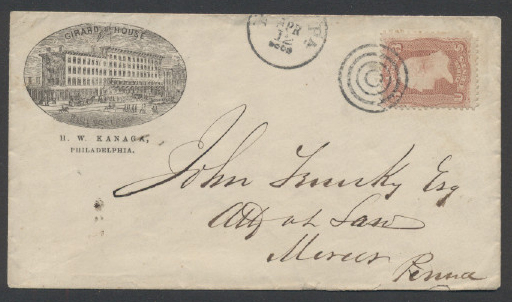 GIRARD HOUSE
H. W. KANAGA,
PHILADELPHIA.
PA.
APR
12
John Trunky Esq
Atty at Law
Mercer
Penna